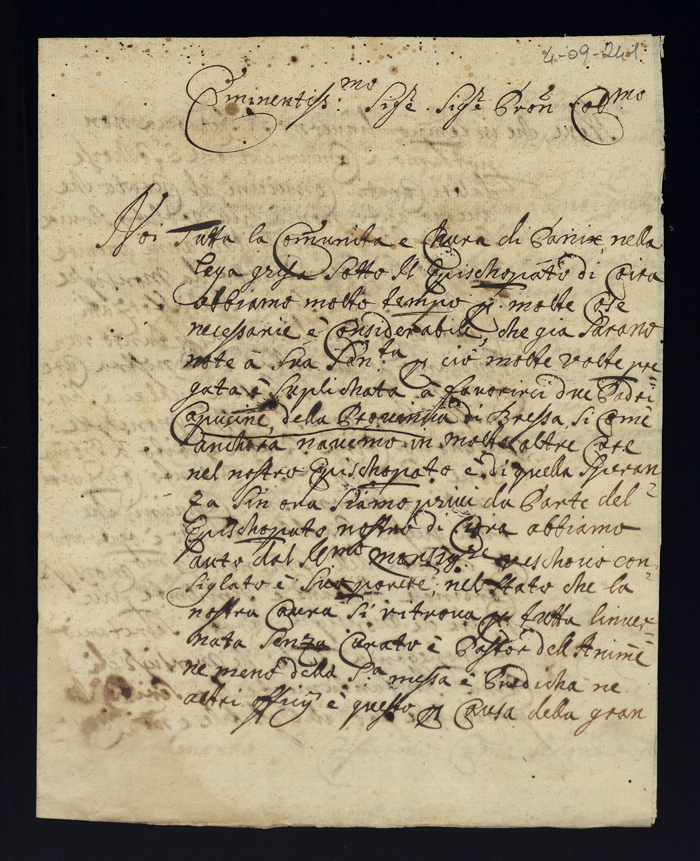 4-09-241
Eminentiss.mo Sig.re Sig.re Pron Col.mo
Noi Tutta la Comunita e Chura di Panix nella
lega grisa Sotto Il Episschopato di Coira
abbiamo molto tempo p. molte Cose
necessarie è Considerabile, che gia Sarano
note à Sua San.ta p. ciò molte volte pre-
gata è Suplichata à favorirci due Padri
Capucine, della Provincia di Bressa, Si Come
anchora navemo in molte altre Core
nel nostro Episschopato è di quella Speran-
za Sin ora Siamo privi da Parte del
Episschopato nostro di Coira abbiamo
auto dal Re.mo Monsig.re veschovo con-
Siglato è Suo parere, nel Stato che la
nostra Caura Si ritrova p. tutta linver-
nata Senza Curato è Pastor dell Animè
ne meno della S.a messa è Predicha ne
altri officij è questo p. Causa della gran